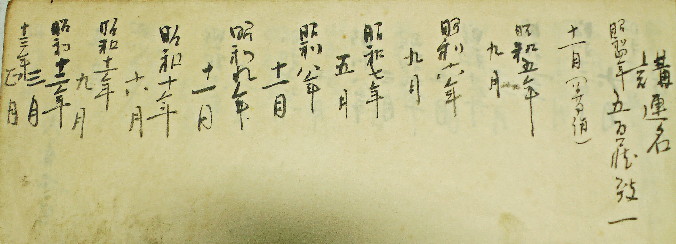 講連名
昭四年 五百蔵致一
十一月
昭和五年
九月
昭和六年
九月
昭和七年
五月
昭和八年
十一月
昭和九年
十一月
昭和十年
十六月
昭和十一年
九月
昭和十二年
三月
十三年
正月